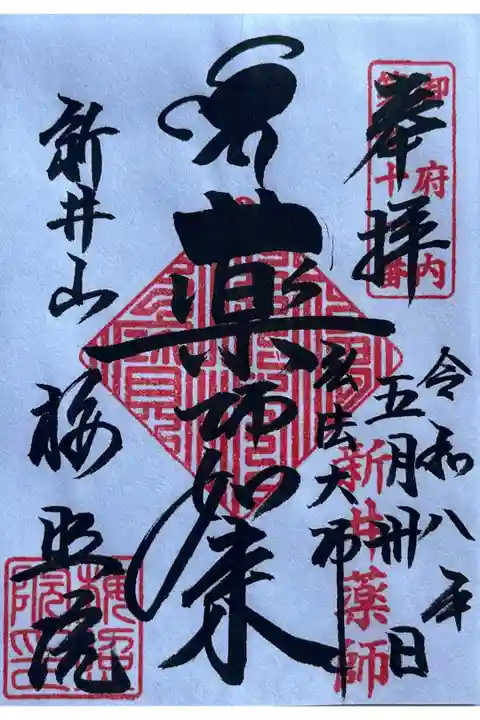 奉拝
御府内
令和八年
五月卅日
新井薬師
弘法大師
薬師如来
新井山 梅照院